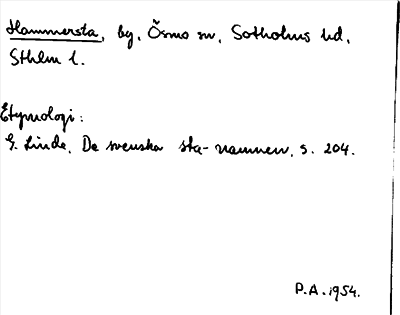 Hammersta, by, Ösmo sn, Sotholms hd,
Sthlm l.
Etymologi:
G. Linde, De svenska sta-namnen, s. 204.
P.A. 1954.